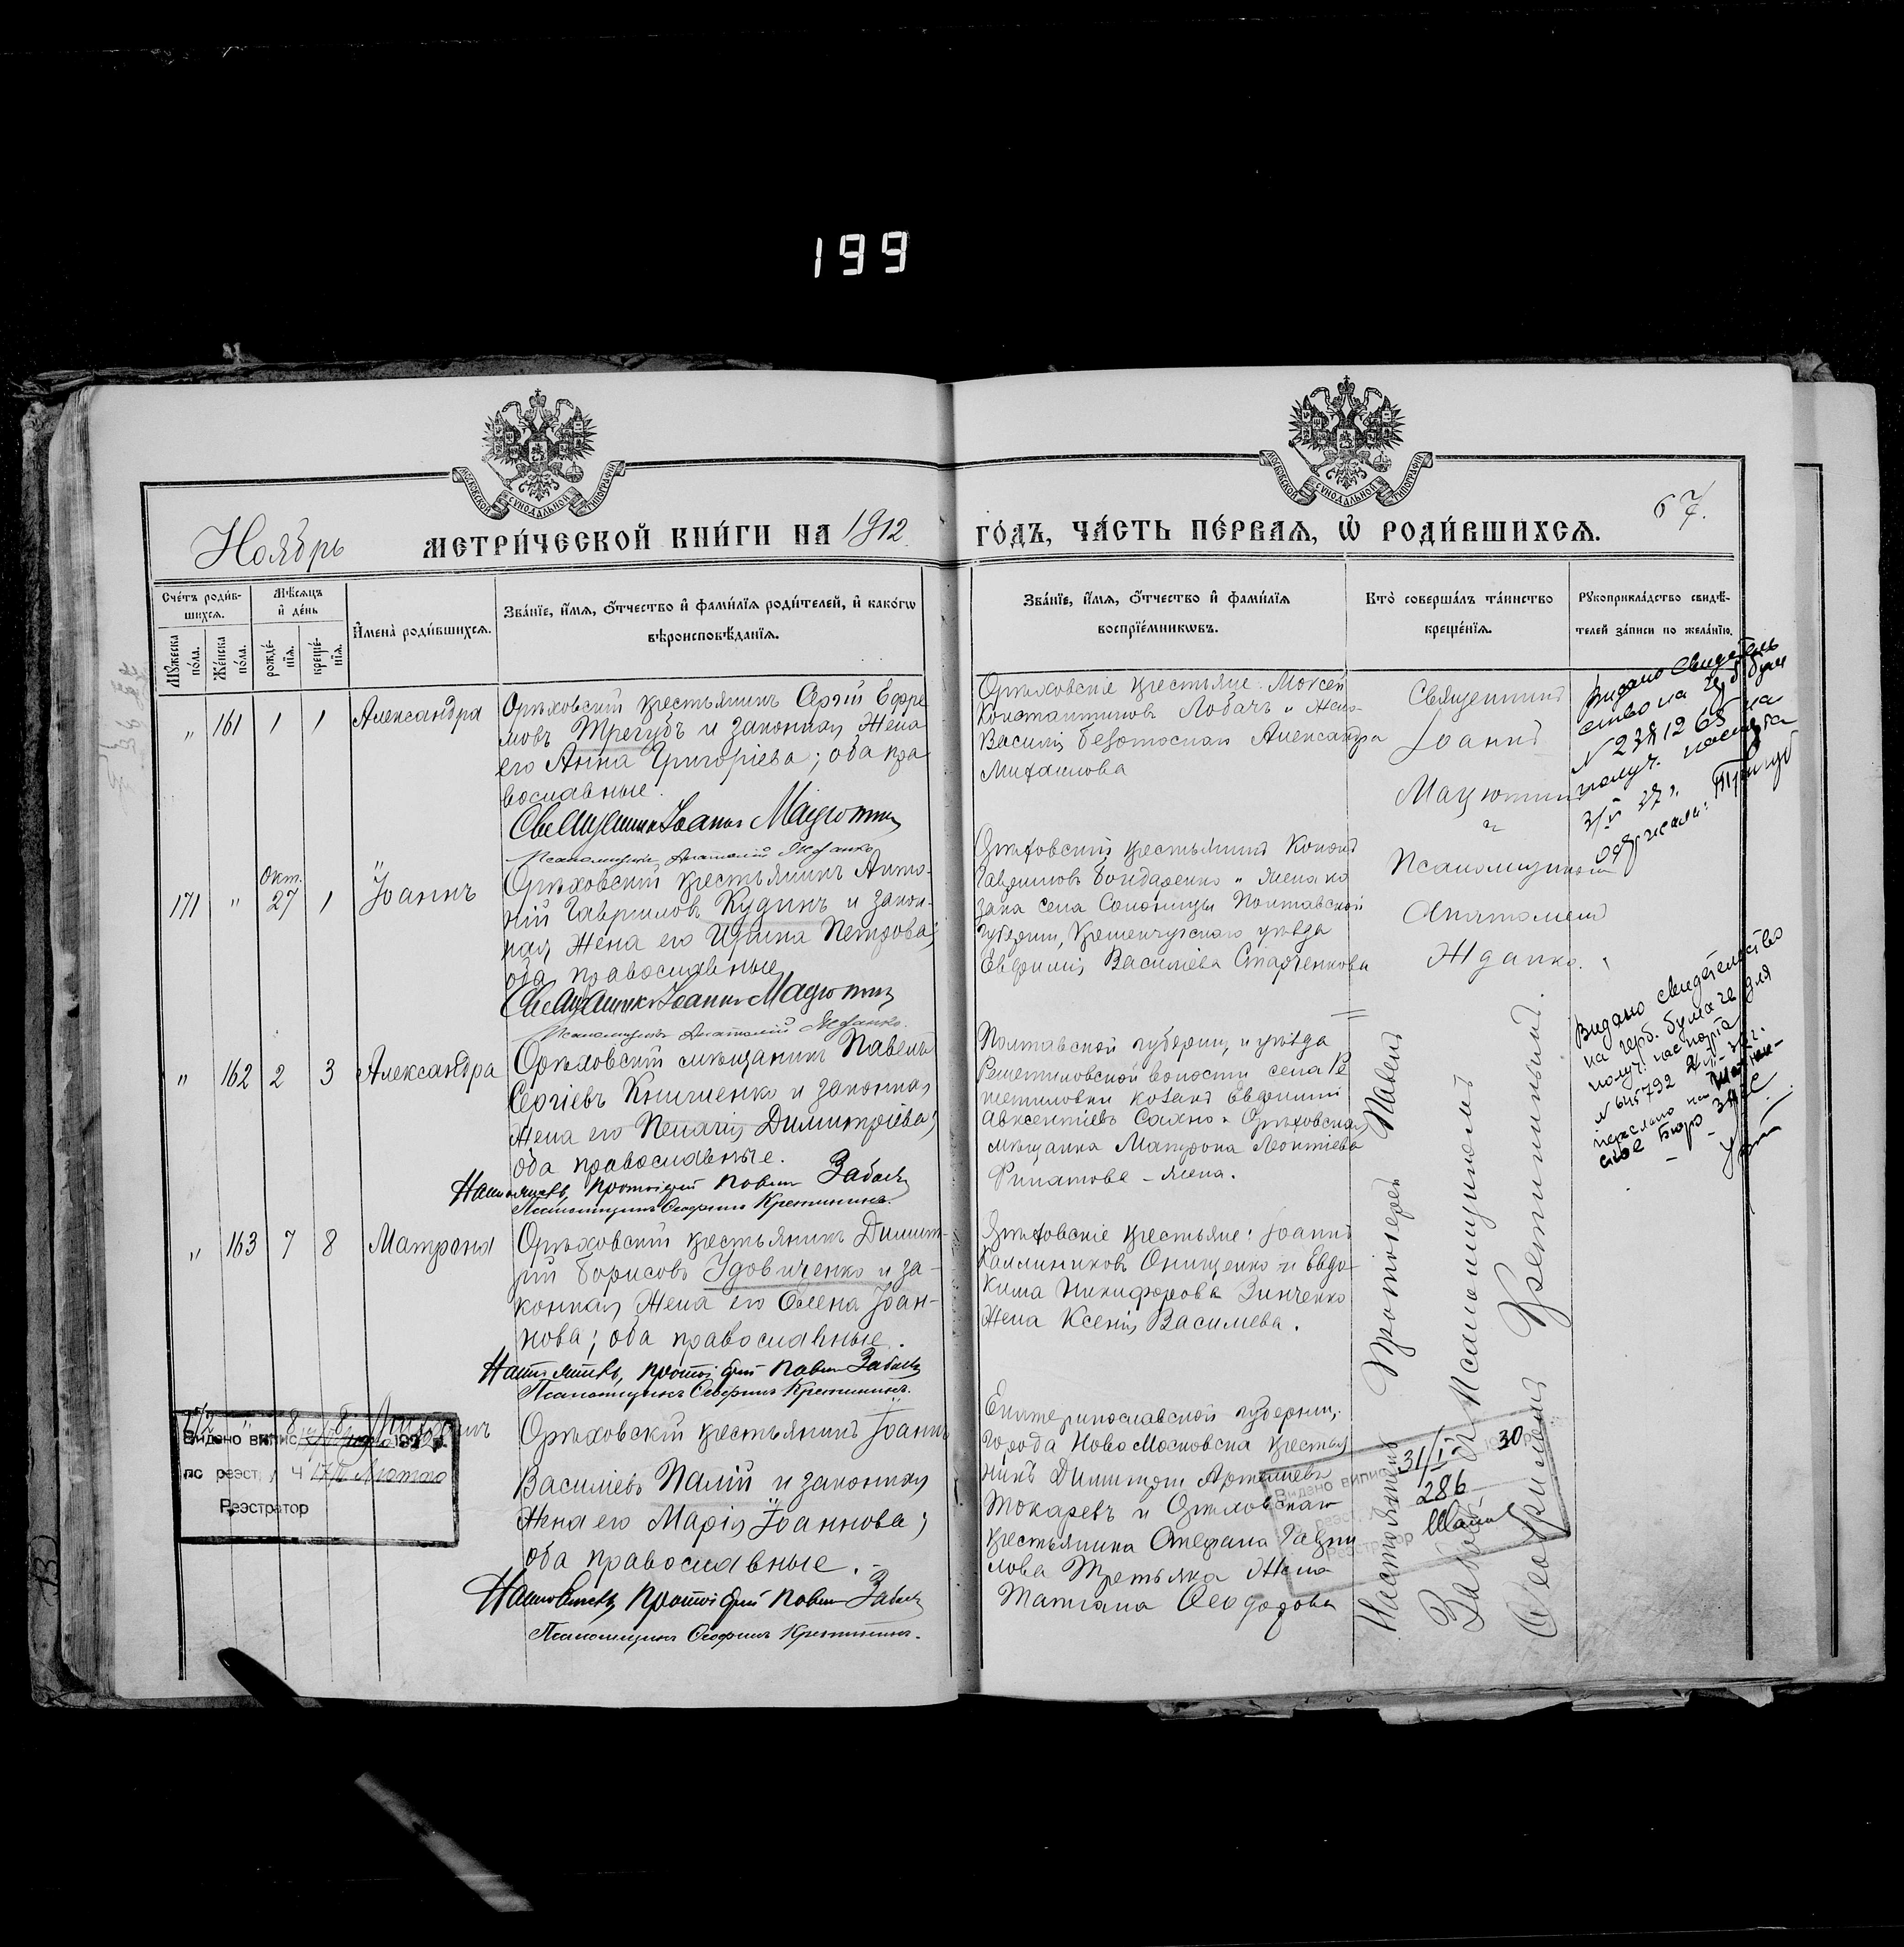 199
МОСКОВСКОЙ СѴНОДАЛЬНОЙ ТИПОГРАФІИ
МОСКОВСКОЙ СѴНОДАЛЬНОЙ ТИПОГРАФІИ
Ноябрь
МЕТРИ́ЧЕСКОЙ КНИ́ГИ НА 1912
ГО́ДЪ, ЧА́СТЬ ПЕ́РВАЯ, Ѽ РОДИ́ВШИХСЯ.
67.
Сче́тъ роди́в-
шихся.
Му́жеска по́ла.
Же́нска по́ла.
Мѣ́сяцъ
и҆ де́нь
рожде́-
нїя.
креще́-
нїя.
И҆мена̀ роди́вшихся.
Зва́нїе, и҆́мя, ѻ҆́тчество и҆ фами́лїя роди́телей, и҆ како́гѡ
вѣроисповѣ́данїя.
Зва́нїе, и҆́мя, ѻ҆́тчество и҆ фами́лїя
воспрїе́мникѡвъ.
Кто̀ соверша́лъ та́инство
креще́нїя.
Рꙋкоприкла́дство свидѣ́-
телей за́писи по жела́нїю.
" 161 1 1 Александра
Орѣховскій крестьянинъ Сергій Ефре
мовъ Трегубъ и законная жена
его Анна Григоріева; оба пра
вославные.
Священникъ Іоаннъ Мацютин
Псаломщикъ Анатолій Жданко
Орѣховскіе крестьяне: Моисей
Константиновъ Лобачъ и жена
Василія Безотоснаго Александра
Михаилова
Священникъ
Іоаннъ
Мацютинъ
и
Псаломщикъ
Анатолій
Жданко.
Видано свидетель
ство на герб. бум
N 2381265 на
получ. паспорта
3/V 37 г.
одержала: Трегуб
171 " Окт. 27 1 Іоаннъ
Орѣховскій крестьянинъ Анто-
ній Гавриловъ Кудинъ и закон-
ная жена его Ирина Петрова;
оба православные
Священникъ Іоаннъ Мацютин
Псаломщикъ Анатолій Жданко.
Орѣховскій крестьянинъ Кононъ
Гавриловъ Бондаренко и жена ко
зака села Солоницы Полтавской
губерніи, Кременчугскаго уѣзда
Евфимія Василіева Старченкова
" 162 2 3 Александра
Орѣховскій мѣщанинъ Павелъ
Сергіевъ Книшенко и законная
жена его Пелагія Димитріева;
оба православные.
Настоятель, протоіерей Павелъ Забаев
Псаломщикъ Ѳеофилъ Кретининъ.
Полтавской губерніи, и уѣзда
Решетиловской волости села Ре
шетиловки козакъ Евфимій
Авксентіевъ Сахно и Орѣховская
мѣщанка Матрона Леонтіева
Филатова - жена.
Видано свидетельство
на герб. бумаге для
получ. паспорта
N 645792
переслано на
ское бюро ЗАГС
" 163 7 8 Матрона
Орѣховскій крестьянинъ Димит-
рій Борисовъ Удовиченко и за-
конная жена его Елена Іоан-
нова; оба православные.
Настоятель, протоіерей Павелъ Забаев
Псаломщикъ Ѳеофилъ Кретининъ.
Орѣховскіе крестьяне: Іоаннъ
Каллиниковъ Онищенко и Евдо-
кима Никифорова Зинченко
жена Ксенія Василіева.
172 " 8 8 Михаилъ
Орѣховскій крестьянинъ Іоаннъ
Василіевъ Палій и законная
жена его Марія Іоаннова;
оба православные.
Настоятель протоіерей Павелъ Забаев
Псаломщикъ Ѳеофилъ Кретининъ.
Екатеринославской губерніи,
города Новомосковска крестья
нинъ Димитрій Артеміевъ
Токаревъ и Орѣховскаго
крестьянина Стефана Гаври
лова Третьяка жена
Татіана Ѳеодорова
Настоятель Протоіерей Павелъ
Псаломщикомъ
Ѳеофиломъ Кретининымъ.
Видано випис 192
по реэст. Ч
Реэстратор
Видано випис 31/I 30
реэст. 286
Реэстратор